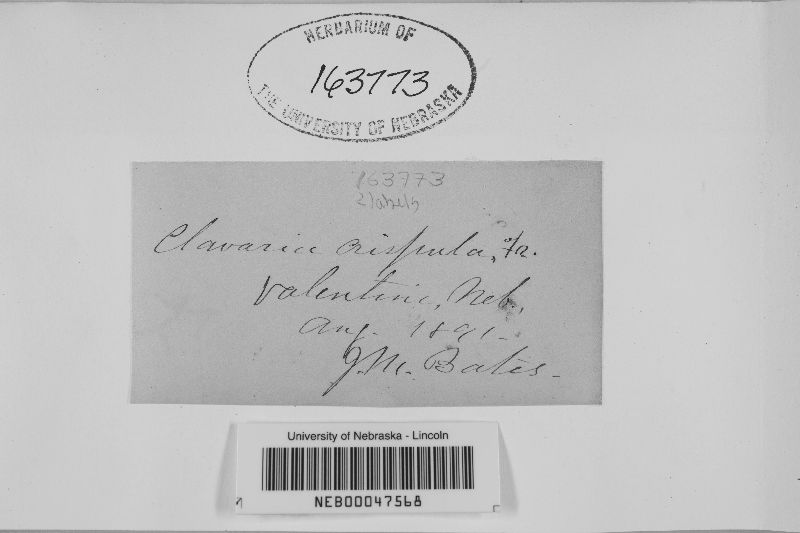 HERBARIUM OF
163773
THE UNIVERSITY OF NEBRASKA
163773
2 labels
Clavaria crispula, Fr.
Valentine, Neb.
Aug. 1891.
J.M. Bates.
University of Nebraska - Lincoln
NEB00047568